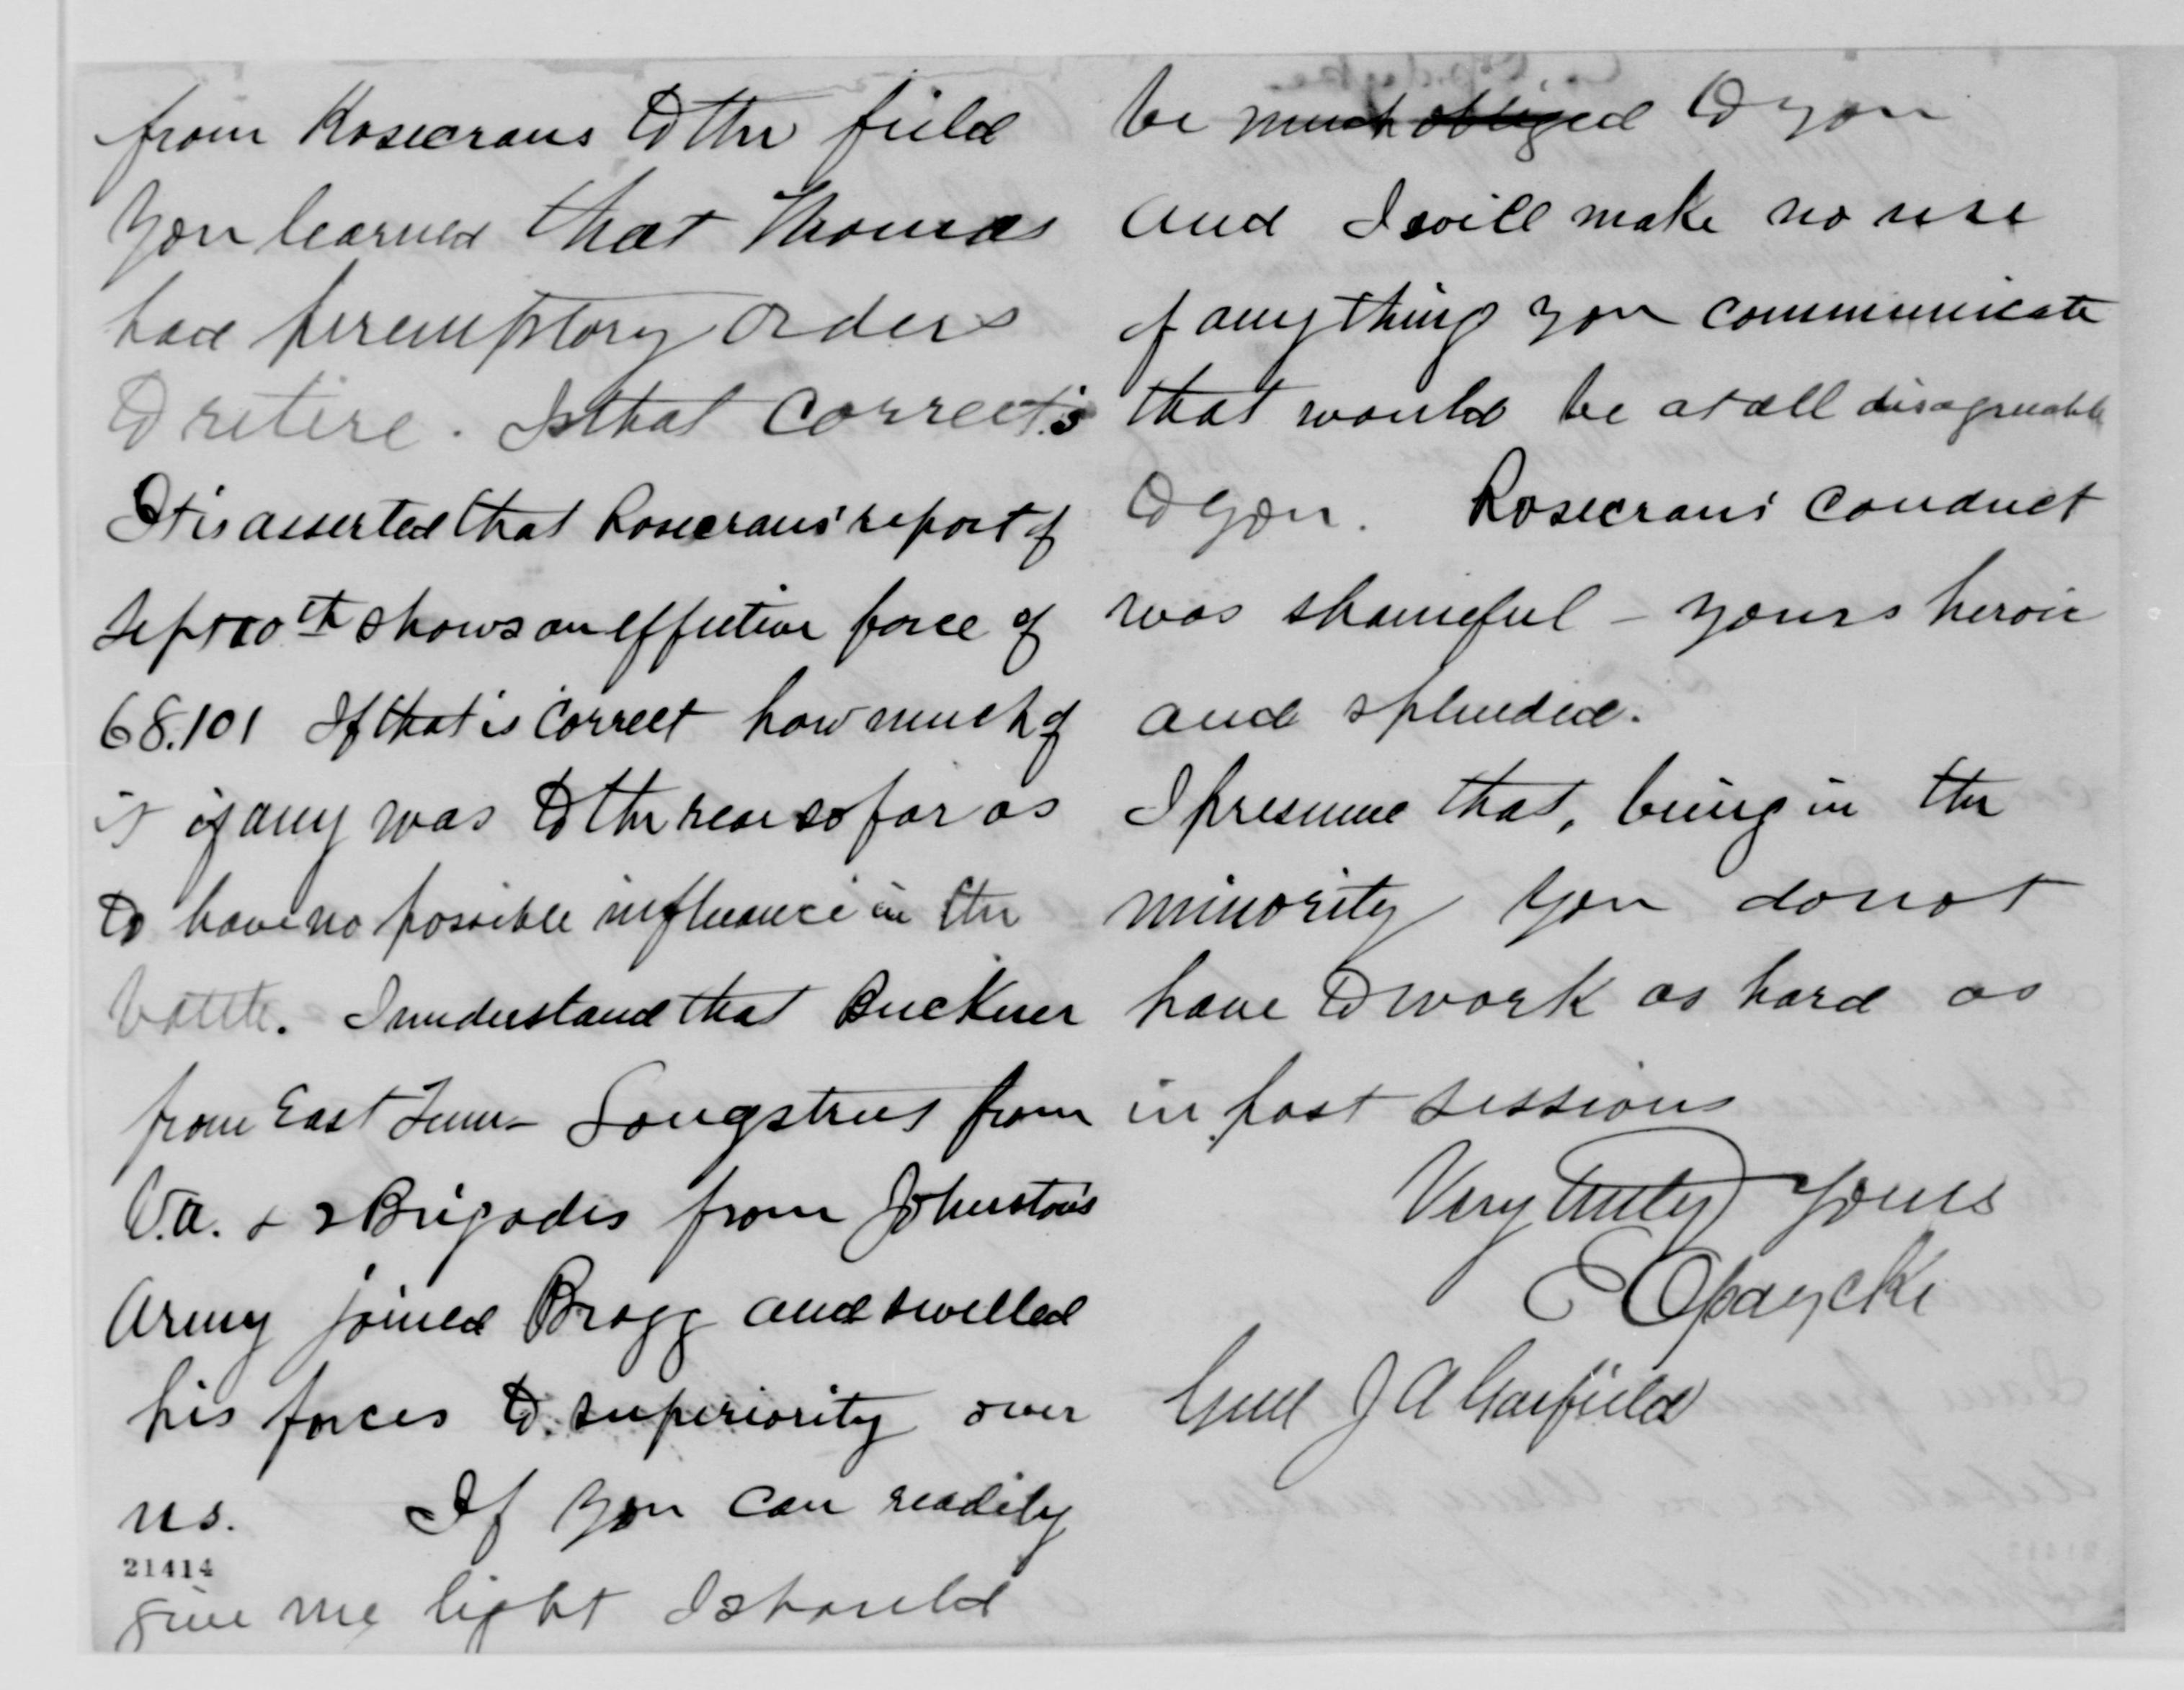 from Rosecrans to the field
you learned that Thomas
had peremptory orders
to retire. Is that correct?
It is asserted that Rosecrans' report of
Sept 20th shows an effective force of
68.101 If that is correct how much of
it if any was to the rear so far as
to have no possible influence in the
battle. I understand that Buckner
from East Tenn- Longstreet from
Va. & 2 Brigades from Johnston's
Army joined Bragg and swelled
his forces to superiority over
us. If you can readily
21414
give me light I should
be much obliged to you
and I will make no use
of anything you communicate
that would be at all disagreeable
to you. Rosecrans' conduct
was shameful - yours heroic
and splendid.
I presume that, being in the
minority you do not
have to work as hard as
in past sessions
Very truly yours
E Opdycke
Genl J A Garfield